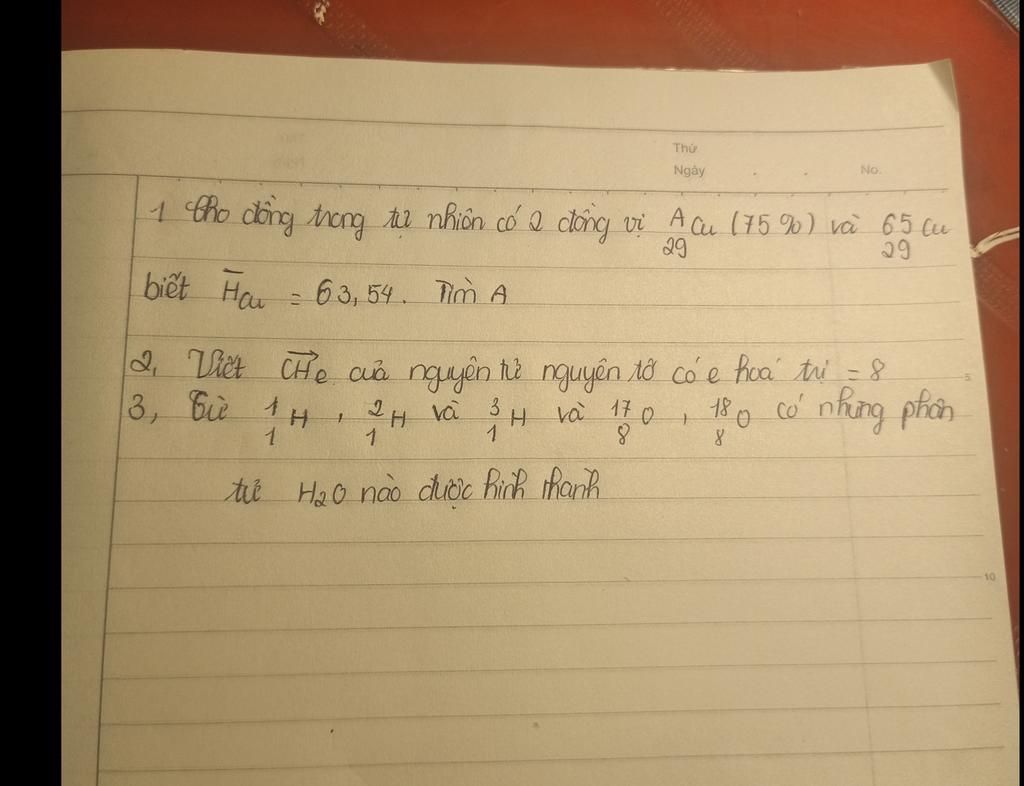 Thứ
Ngày . . No.
1 Cho đồng trong tự nhiên có 2 đồng vị ᴬ₂₉Cu (75%) và ⁶⁵₂₉Cu
biết H̄Cu = 63,54. Tìm A
2, Viết CHe của nguyên tử nguyên tố có e hoá trị = 8
3, Từ ¹₁H , ²₁H và ³₁H và ¹⁷₈O , ¹⁸₈O có nhưng phân
tử H₂O nào được hình thanh
5
10